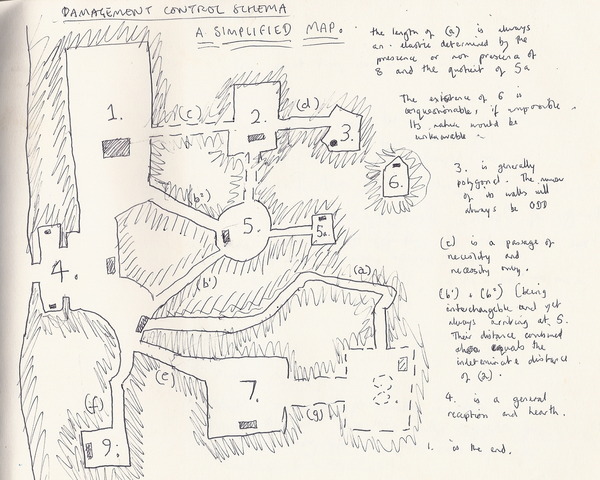 DAMAGEMENT CONTROL SCHEMA
A SIMPLIFIED MAP.
the length of (a) is always
an elastic determined by the
presence or non presence of
8 and the quotient of 5a
The existence of 6 is
questionable, if impossible.
Its nature would be
unknowable
3. is generally
polygonal. The number
of its walls will
always be ODD
(c) is a passage of
necessity and
necessity only.
(b') & (b") (being
interchangeable and yet
always arriving at 5.
Their distance combined
equals the
indeterminate distance
of (a).
4. is a general
reception and hearth.
1. is the end.
1.
(c)
2.
(d)
3.
6.
(b")
5.
5a
4.
(b')
(a)
(e)
7.
(g)
8
(f)
9.